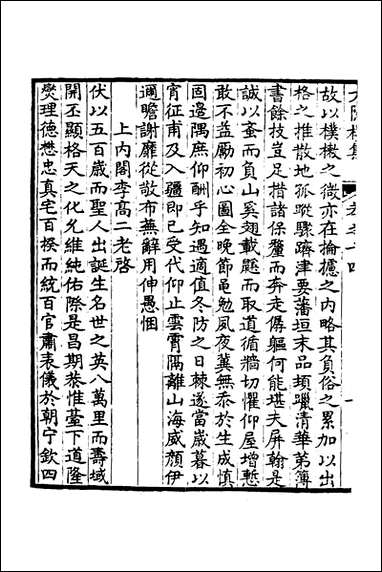 故以樸樕之微亦在掄攟之内略其負俗之累加以出
格之推散地孤蹤驟躋津要藩垣末品頓躐清華第簿
書餘技豈足楷諸保釐而奔走孱軀何能堪夫屏翰是
誠以蚉而負山奚翅載鼷而取道循牆切懼仰屋增慙
敢不益勵初心圖全晚節黽勉夙夜冀無忝於生成慎
固邊隅庶仰酬乎知遇適值冬防之日棘遂當歲暮以
宵征甫及入疆即已受代仰止雲霄隔離山海威顔伊
邇瞻謝靡從敢布蕪辭用伸愚悃
上内閣李高二老啓
伏以五百歲而聖人出誕生名世之英八萬里而壽域
開丕顯格天之化允維純佑際是昌期恭惟臺下道隆
爕理德懋忠真宅百揆而統百官肅表儀於朝宁欽四